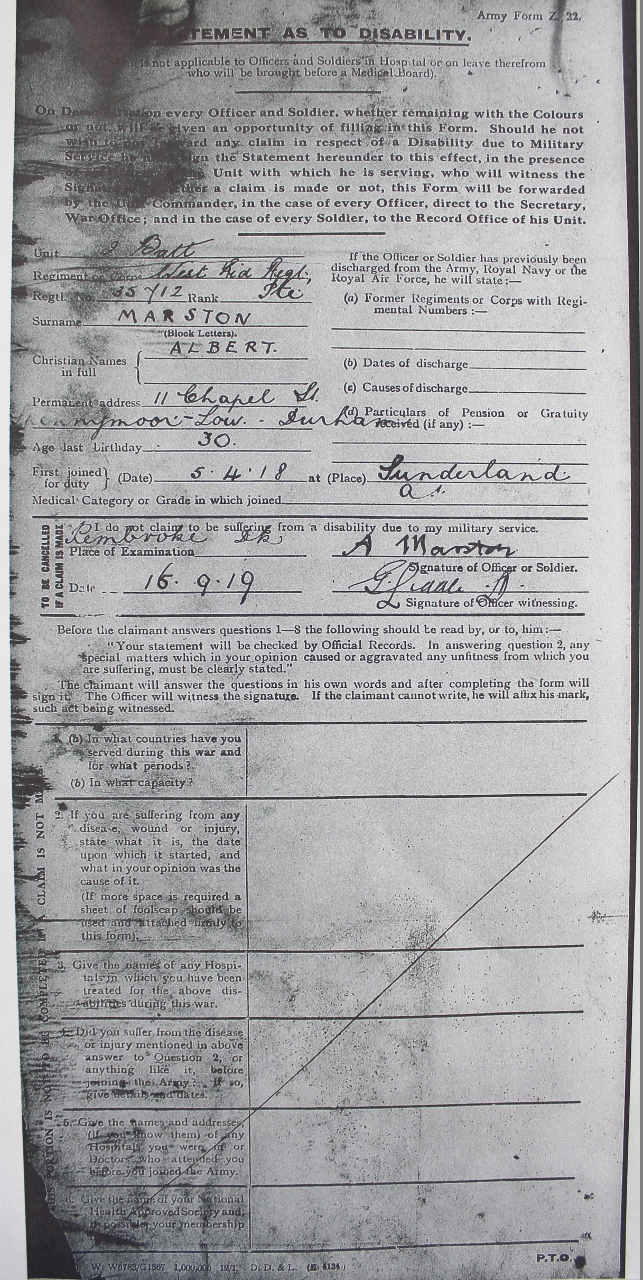 Army Form Z. 22.
STATEMENT AS TO DISABILITY.
is not applicable to Officers and Soldiers in Hospital or on leave therefrom
who will be brought before a Medical Board).
On every Officer and Soldier, whether remaining with the Colours
or not, will be given an opportunity of filling in this Form. Should he not
wish to forward any claim in respect of a Disability due to Military
Service he sign the Statement hereunder to this effect, in the presence
Unit with which he is serving, who will witness the
a claim is made or not, this Form will be forwarded
by the Commander, in the case of every Officer, direct to the Secretary,
War Office; and in the case of every Soldier, to the Record Office of his Unit.
Unit 2 Batt
Regiment or Corps West Rid Regt,
Regtl. No. 35712 Rank Pte
Surname MARSTON
(Block Letters).
Christian Names in full ALBERT.
Permanent address 11 Chapel St.
Low. - Durham
Age last birthday 30.
If the Officer or Soldier has previously been
discharged from the Army, Royal Navy or the
Royal Air Force, he will state:—
(a) Former Regiments or Corps with Regi-
mental Numbers :—
(b) Dates of discharge
(c) Causes of discharge
(d) Particulars of Pension or Gratuity
received (if any) :—
First joined for duty } (Date) 5.4.18 at (Place) Sunderland
Medical Category or Grade in which joined
TO BE CANCELLED
IF A CLAIM IS MADE
I do not claim to be suffering from a disability due to my military service.
Pembroke Dk
Place of Examination
A Marston
Signature of Officer or Soldier.
Date 16.9.19
Signature of Officer witnessing.
Before the claimant answers questions 1—8 the following should be read by, or to, him :—
"Your statement will be checked by Official Records. In answering question 2, any
special matters which in your opinion caused or aggravated any unfitness from which you
are suffering, must be clearly stated."
The claimant will answer the questions in his own words and after completing the form will
sign it. The Officer will witness the signature. If the claimant cannot write, he will affix his mark,
such act being witnessed.
1. (a) In what countries have you
served during this war and
for what periods?
(b) In what capacity?
2. If you are suffering from any
disease, wound or injury,
state what it is, the date
upon which it started, and
what in your opinion was the
cause of it.
(If more space is required a
sheet of foolscap should be
used and attached firmly to
this form).
3. Give the names of any Hospi-
tals in which you have been
treated for the above dis-
abilities during this war.
4. Did you suffer from the disease
or injury mentioned in above
answer to Question 2, or
anything like it, before
joining the Army? If so,
give details and dates.
5. Give the names and addresses,
(if you know them) of any
Hospitals you were in or
Doctors who attended you
before you joined the Army.
Give the name of your National
Health Approved Society and,
if possible, your membership
THIS PORTION IS NOT TO BE COMPLETED IF A CLAIM IS NOT M
P.T.O.
W. W6783/G1567 1,000,000 D. D. & L.